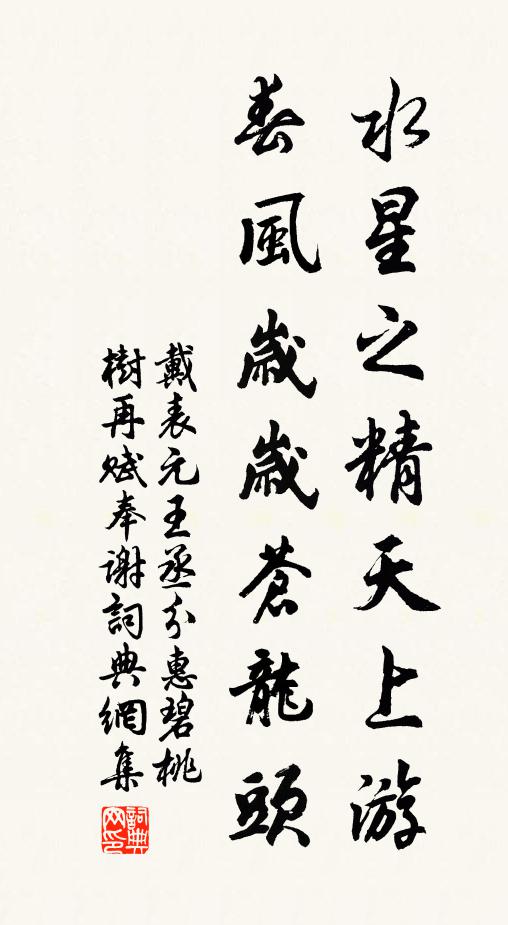 水星之精天上游
春風歲歲蒼龍頭
戴表元王丞分惠碧桃
樹再賦奉謝詞典網集
詞典
网印